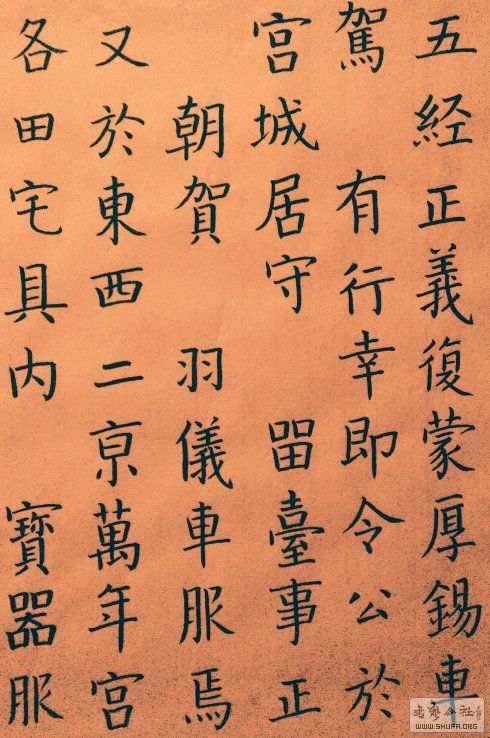 五経正義復蒙厚錫車
駕 有行幸即令公於
宮城居守 留臺事正
朝賀 羽儀車服焉
又於東西二京萬年宮
各田宅具内 寶器服
WWW.SHUFA.ORG